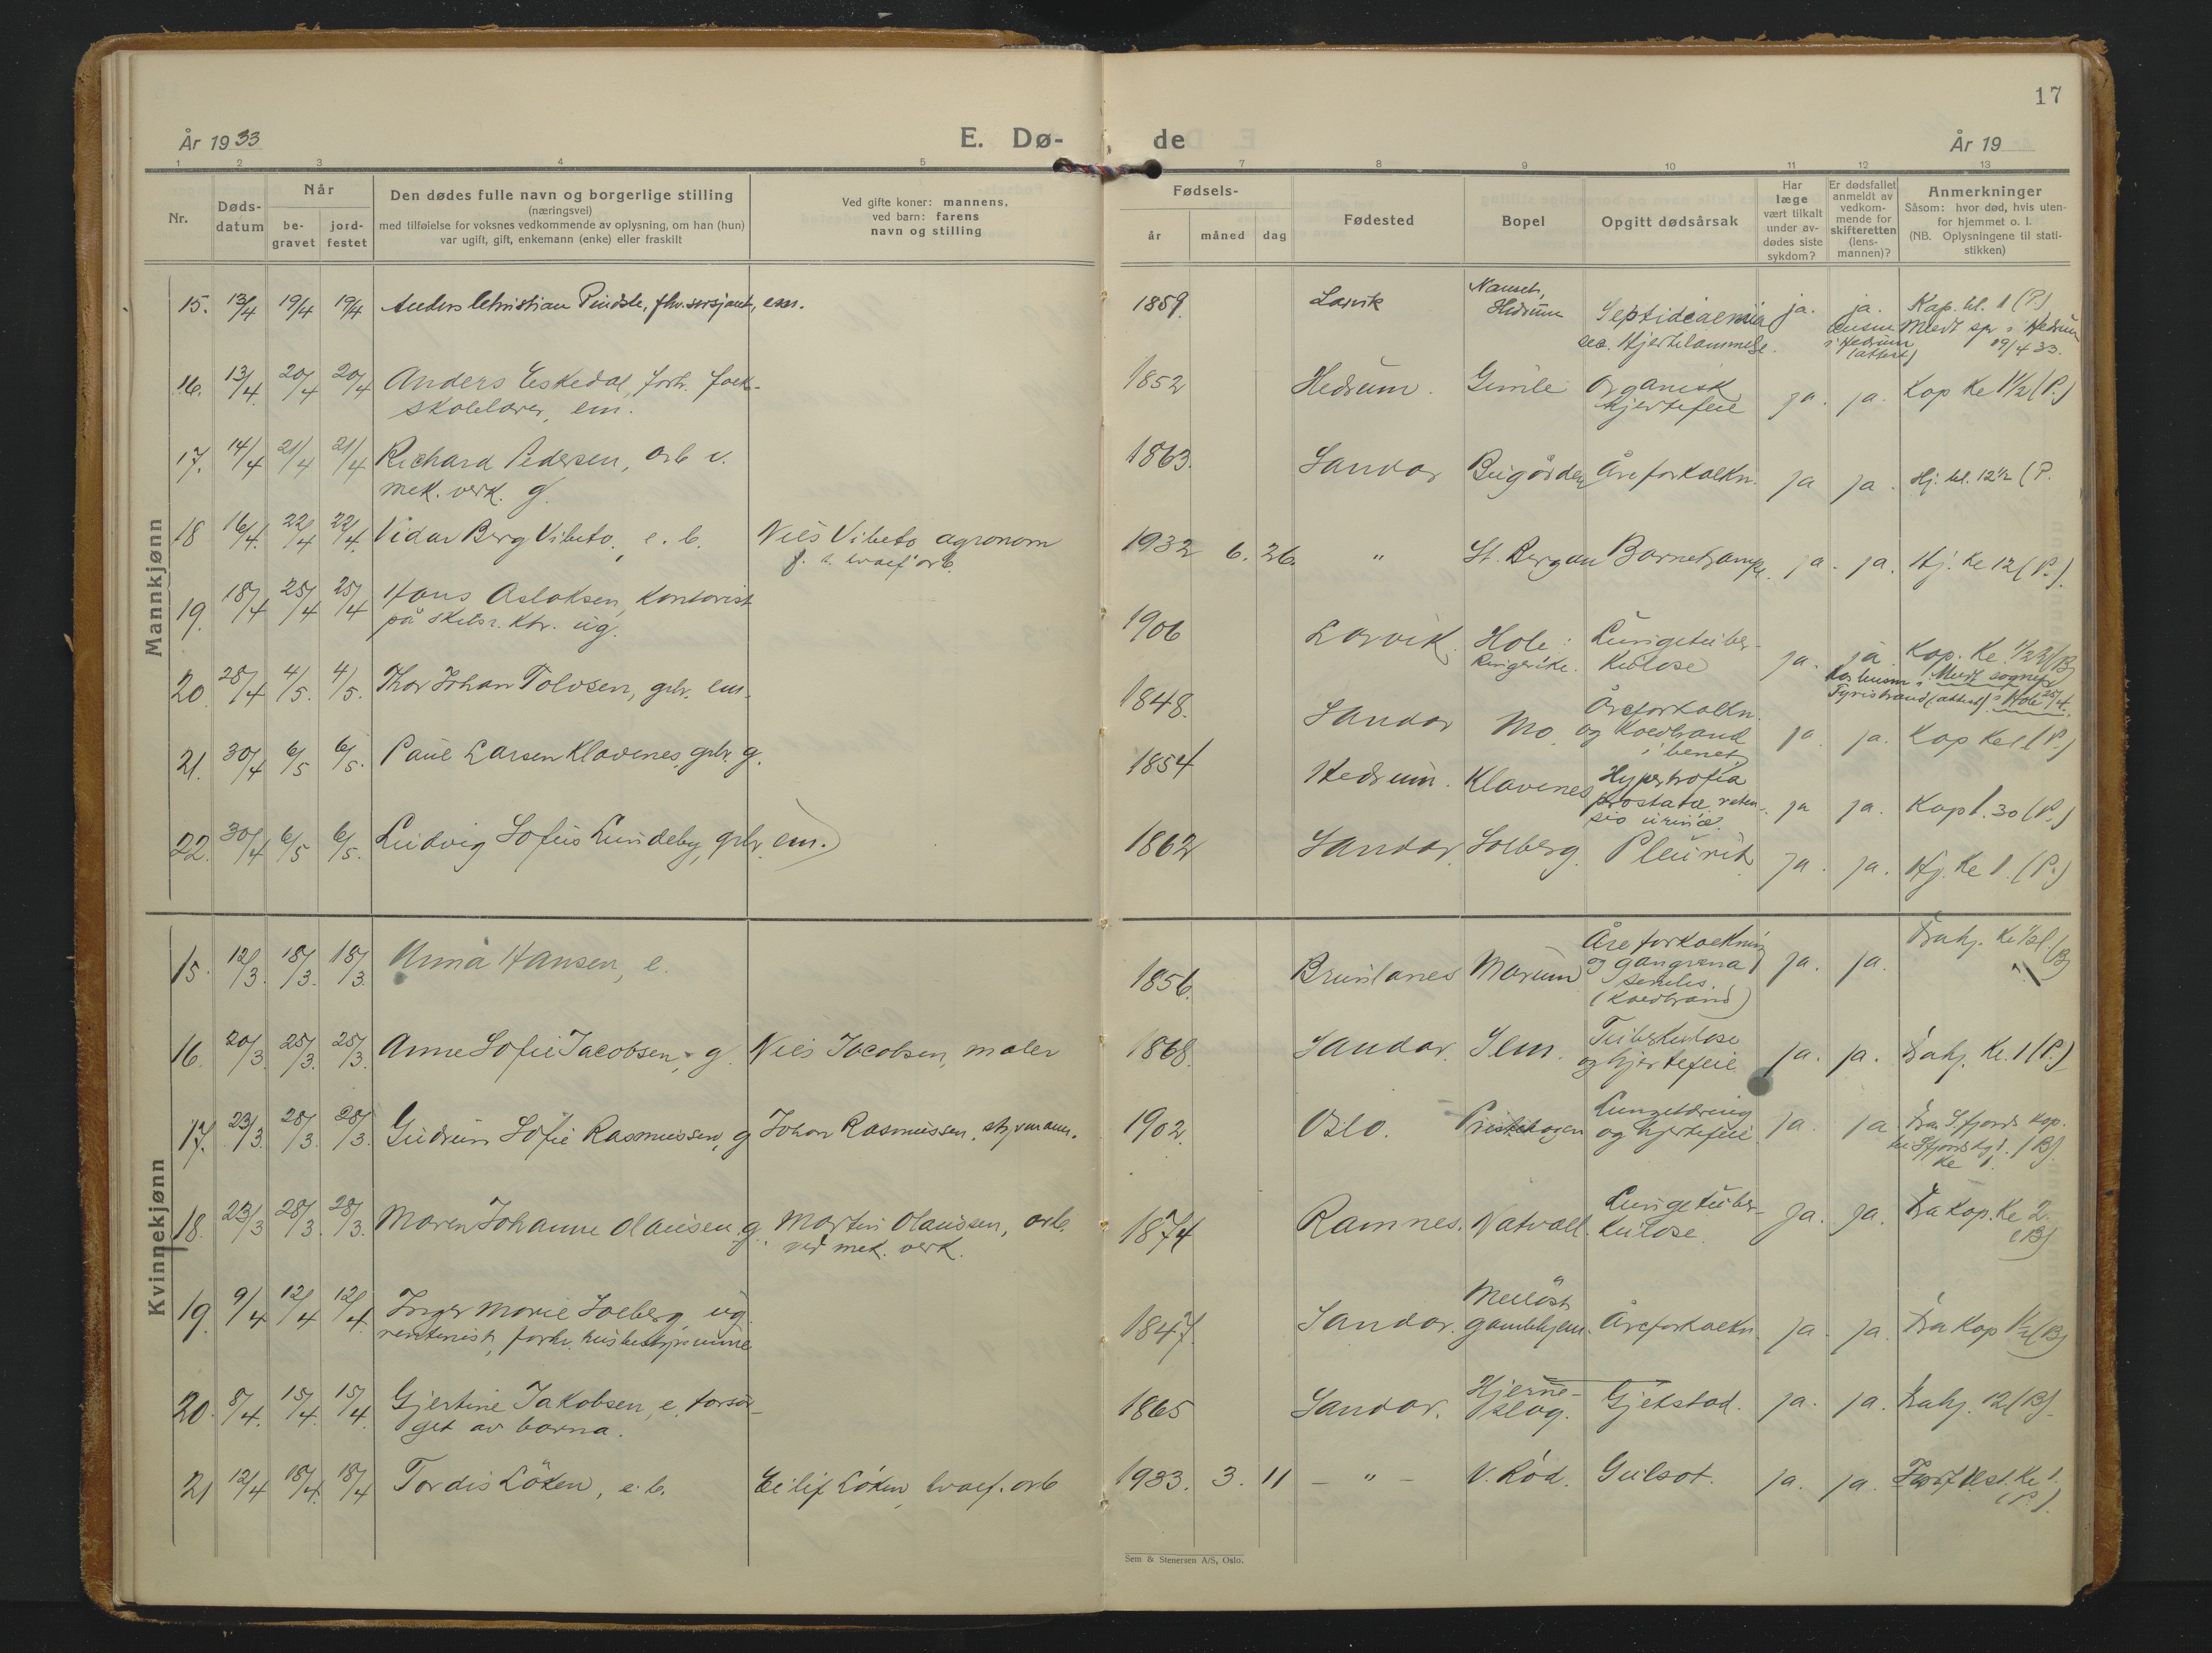 17
År 1933
E. Dø-
de
År 19
1 2 3 4 5 7 8 9 10 11 12 13
Nr.
Døds-
datum
Når
be-
gravet
jord-
festet
Den dødes fulle navn og borgerlige stilling
(næringsvei)
med tilføielse for voksnes vedkommende av oplysning, om han (hun)
var ugift, gift, enkemann (enke) eller fraskilt
Ved gifte koner: mannens,
ved barn: farens
navn og stilling
Fødsels-
år måned dag
Fødested
Bopel
Opgitt dødsårsak
Har
læge
vært tilkalt
under av-
dødes siste
sykdom?
Er dødsfallet
anmeldt av
vedkom-
mende for
skifteretten
(lens-
mannen)?
Anmerkninger
Såsom: hvor død, hvis uten-
for hjemmet o. l.
(NB. Oplysningene til stati-
stikken)
Mannkjønn
15. 13/4 19/4 19/4 Anders Christian Pindsle, fhv. sersjant, em. 1859. Larvik Nanset, Hedrum Septicaemia ja. ja. Kap. kl. 1 (P.)
sec. Hjertelammelse. i Hedrum (attest) 19/4 33.
16. 13/4 20/4 20/4 Anders Eskedal, forh. folke- 1852 Hedrum. Gimle Organisk ja. ja. Kap kl 1 1/2 (P.)
skolelærer, em. hjertefeil
17. 14/4 21/4 21/4 Richard Pedersen, arb v. 1863. Sandar Bugården Åreforkalkn. ja ja. Hj. kl. 12 1/2 (P.
mek. verk. g.
18 16/4. 22/4 22/4. Vidar Berg Vibeto, e. b. Nils Vibeto agronom 1932 6. 26. " St. Bergan Barnekrampe. ja. ja. Hj. kl 12 (P.).
hvalf. arb.
19. 18/4 25/4 25/4 Hans Aslaksen, kontorist 1906 Larvik. Hole: Lungetuber- ja. ja. Kap. kl.
på skibsr. ktr. ug. Ringerike. kulose
Tyristrand (attest) i Hole 25/4.
20 28/4 4/5. 4/5. Thor Johan Tolvsen, gbr. em. 1848. Sandar Mo. Åreforkalkn. ja. ja. Kap kl 1 (P.)
og koldbrand
i benet
21. 30/4 6/5 6/5. Paul Larsen Klavenes, gbr. g. 1854 Hedrum. Klavenes Hypertrofia ja ja. Kap 1.30 (P.)
prostata, reten-
sio urinæ.
22. 30/4 6/5 6/5. Ludvig Sofus Lundeby, gbr. em. 1862 Sandar. Solberg. Pleurit ja. ja. Hj. kl 1. (P.)
Kvinnekjønn
15. 12/3. 18/3. 18/3. Anna Hansen, e. 1856. Brunlanes Marum Åreforkalkning ja. ja.
og gangrena
senilis.
(koldbrand)
16. 20/3. 25/3. 25/3. Anne Sofie Jacobsen, g. Nils Jacobsen, maler 1868. Sandar. Sem. Tuberkulose ja. ja. Fra hj. kl. 1 (P.)
og hjertefeil
17. 23/3. 28/3. 28/3. Gudrun Sofie Rasmussen, g Johan Rasmussen, styrmann. 1902. Oslo. Preståsen ja. ja Fra S.fjords kap.
og hjertefeil
18. 23/3 28/3. 28/3. Maren Johanne Olausen. g. Martin Olaussen, arb. 1874 Ramnes. Natvall. Lungetuber- ja. ja. Fra Kap. kl 2.
ved mek. verk. kulose. (B)
19. 9/4 12/4 12/4. Inger Marie Solberg, ug. 1847. Sandar. Åreforkalkn. ja. ja. Fra Kap 1 1/2 (B)
rentenist, forh. husbestyrerinne gamlehjem.
20. 8/4. 15/4. 15/4. Gjertine Jakobsen, e. forsør- 1865 Sandar. Hjerne- Gjekstad. ja. ja. Fra hj. 12 (B).
get av barna. slag.
21 12/4 18/4. 18/4 Tordis Löken, e. b. Eilif Löken, hvalf. arb 1933. 3. 11 – " – V. Rød. Gulsot. ja. ja. kl 1.
(P.).
Sem & Stenersen A/S, Oslo.